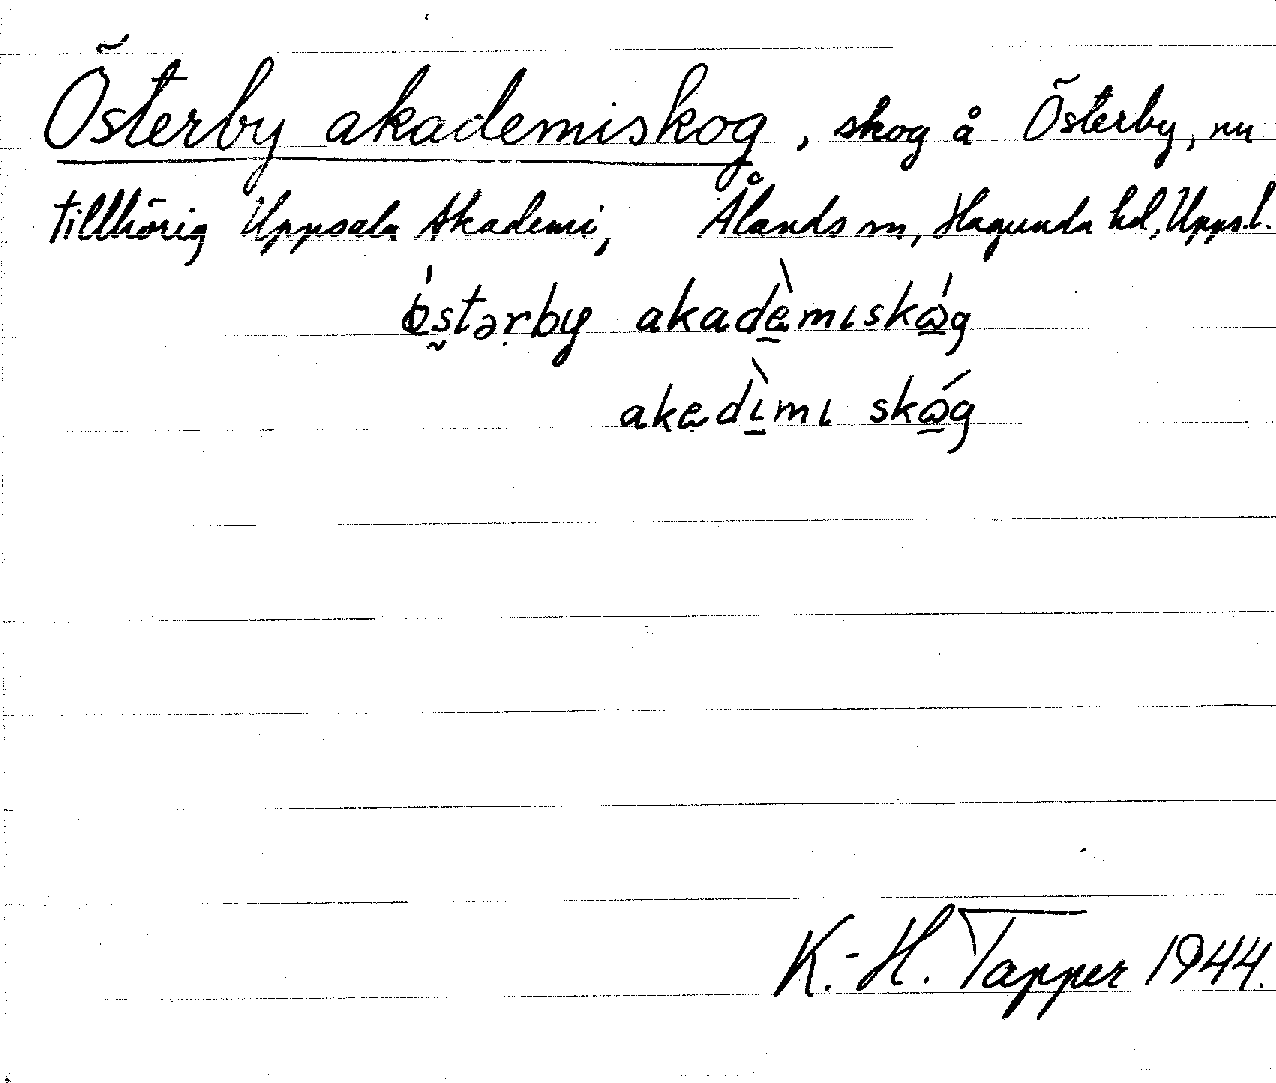 Österby akademiskog, skog å Österby, nu
tillhörig Uppsala Akademi, Ålands sn, Hagunda hd, Upps.l.
ǿstərby akadèmɩskóg
akadɩ̀mɩ skóg
K.-H. Tapper 1944.